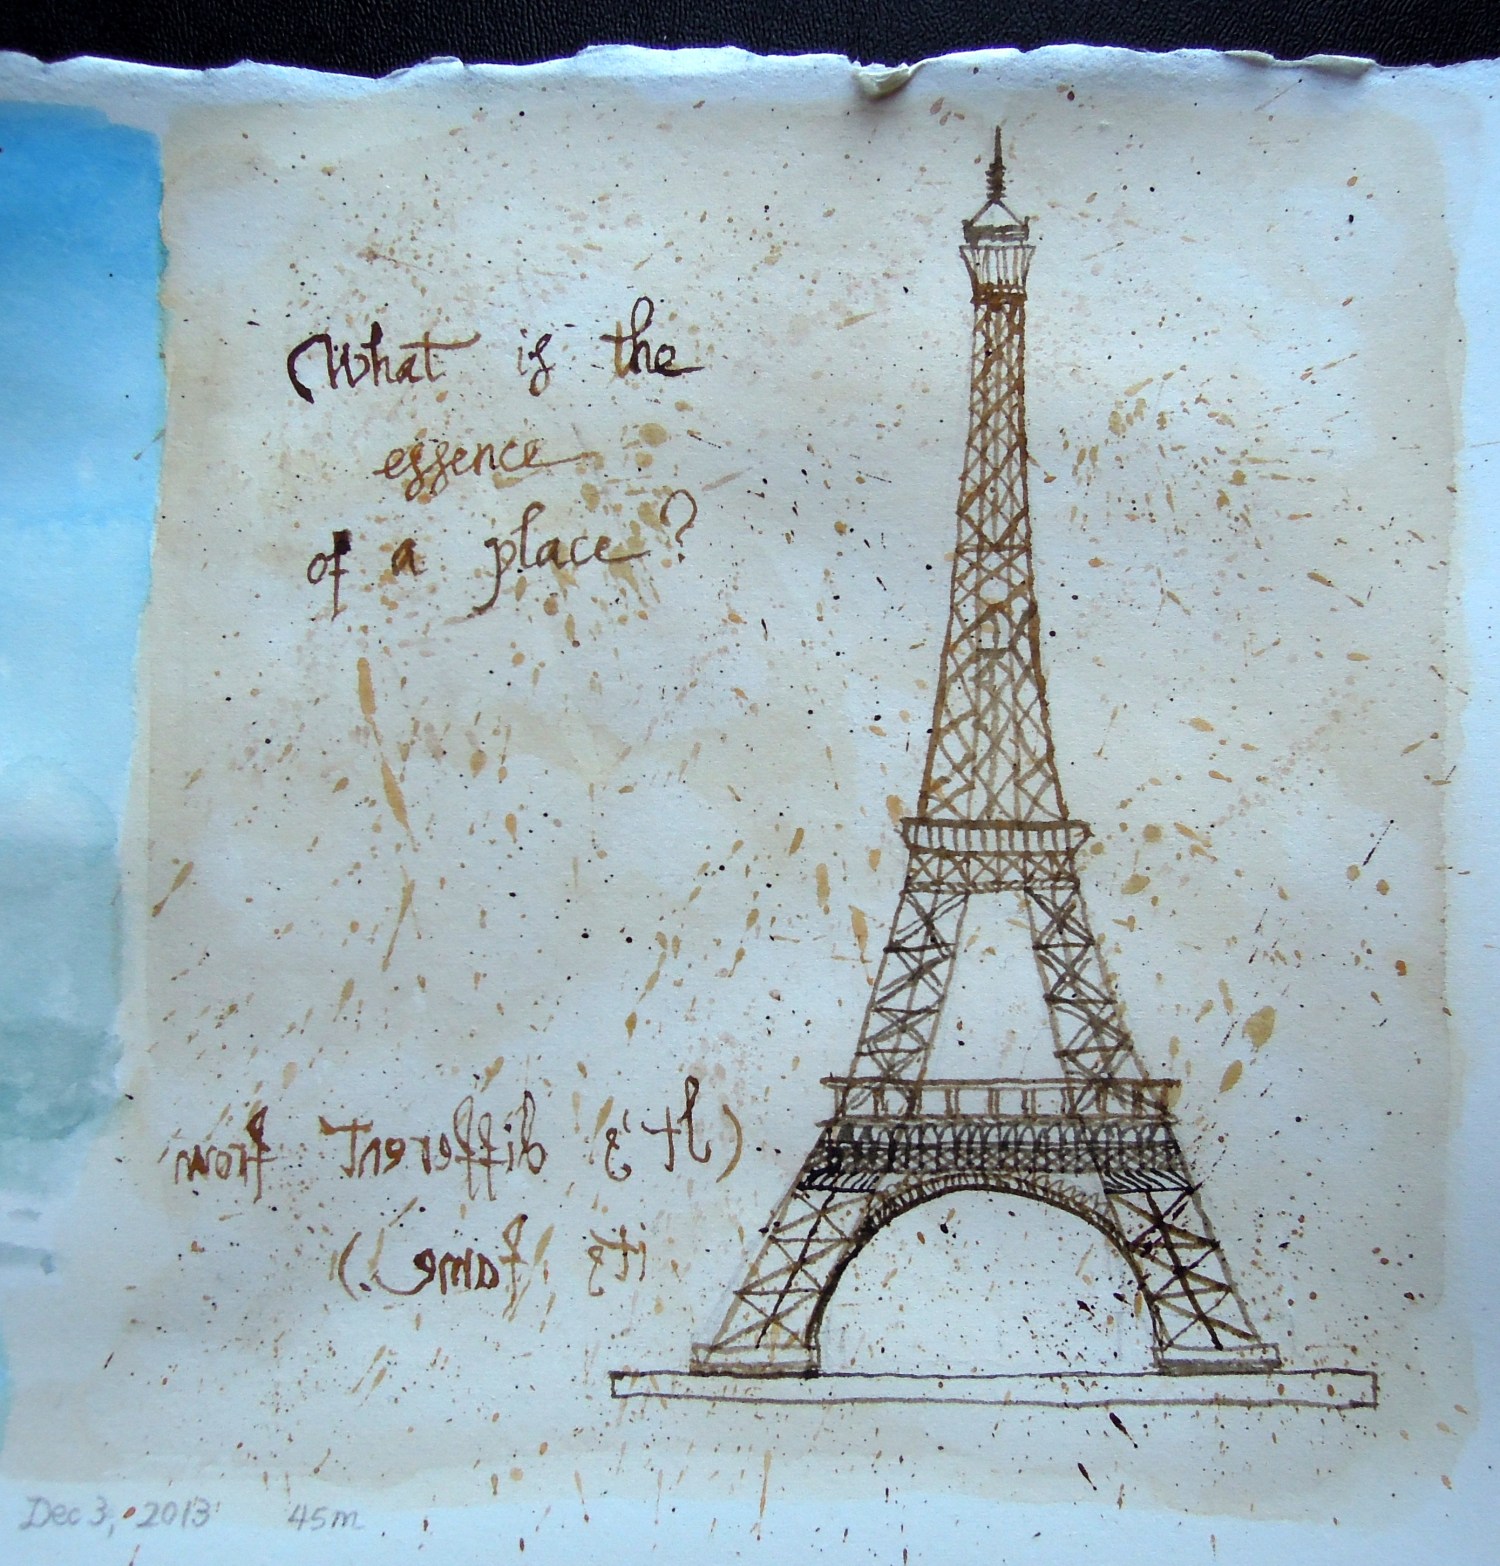 What is the
essence
of a place?
(It's different from
its fame.)
Dec 3, 2013 45m